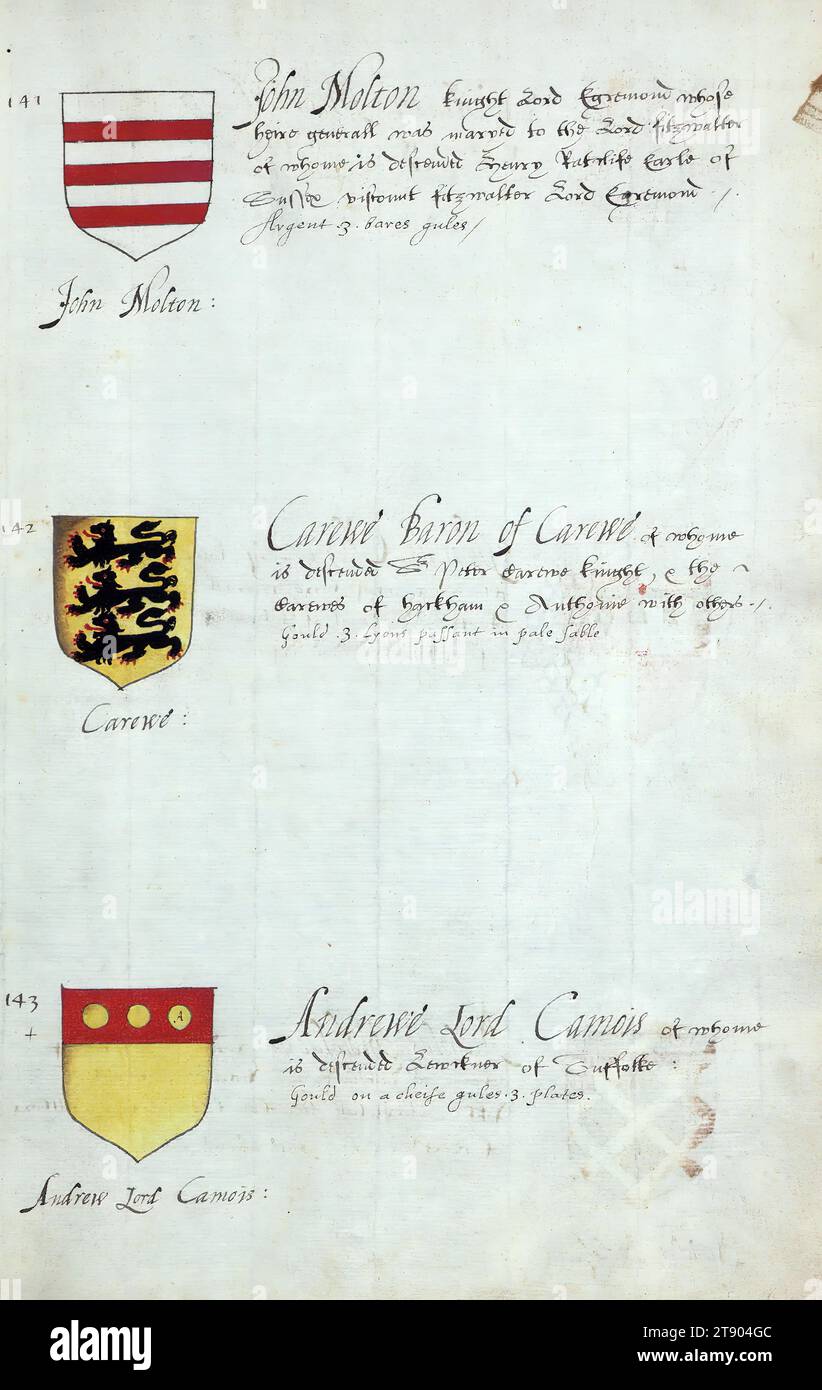 141
John Molton knight Lord Egremond whose
heire generall was maryed to the Lord fitzwalter
of whome is descended Henry Ratclife Earle of
Sussex viscount fitzwalter Lord Egremond ./.
Argent .3. bares gules /
John Molton :
142
Carewe Baron of Carewe of whome
is descended Sr Peter Carewe knight, & the
Carewes of Hackham & Anthonie with others ./.
Gould .3. Lyons passant in pale sable
Carewe :
143
+
A
Andrewe Lord Camois of whome
is descended Lewckner of Suffolke :
Gould on a cheife gules .3. plates.
Andrew Lord Camois :
a
alamy
alamy
Image ID: 2T904GC
www.alamy.com